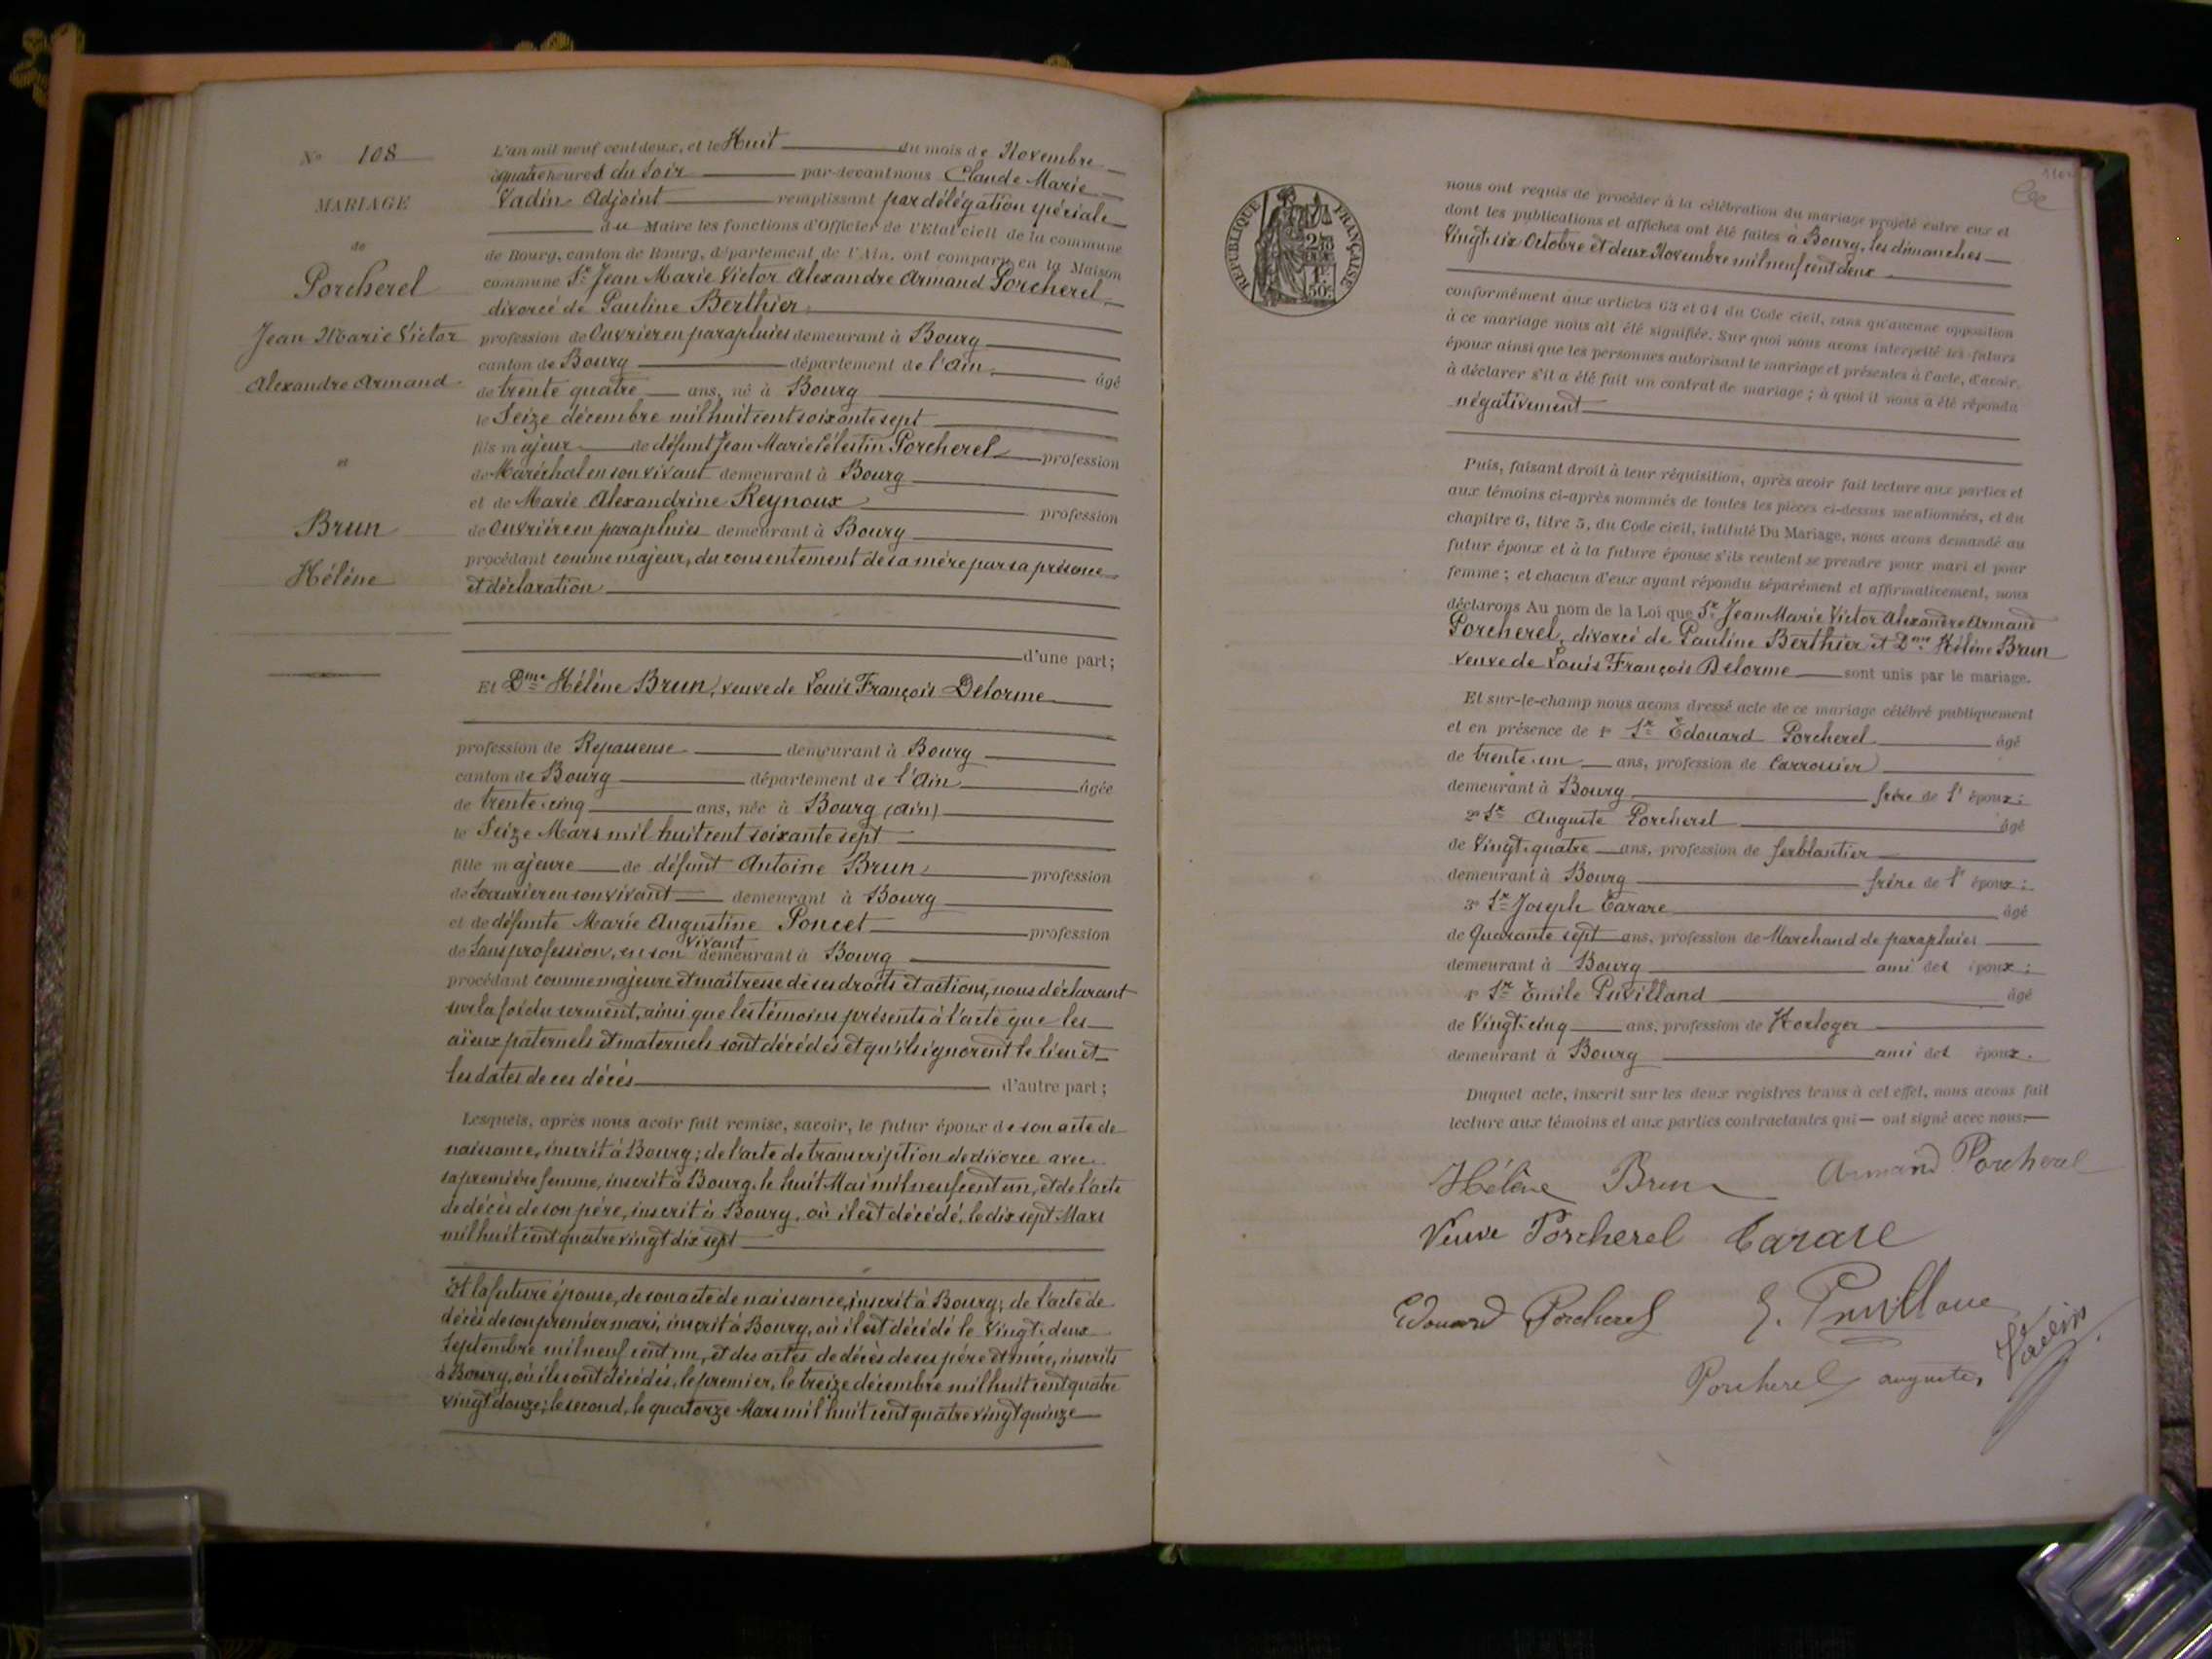 N° 108
MARIAGE
de
Porcherel
Jean Marie Victor
Alexandre Armand
et
Brun
Hélène
L'an mil neuf cent deux, et le Huit du mois de Novembre
à quatre heures du Soir par-devant nous Claude Marie
Vadin Adjoint remplissant par délégation spéciale
du Maire les fonctions d'Officier de l'Etat civil de la commune
de Bourg, canton de Bourg, département de l'Ain, ont comparu en la Maison
commune Sr Jean Marie Victor Alexandre Armand Porcherel,
divorcé de Pauline Berthier,
profession de Ouvrier en parapluies demeurant à Bourg
canton de Bourg département de l'Ain âgé
de trente quatre ans, né à Bourg
le Seize décembre mil huit cent soixante sept
fils majeur de défunt Jean Marie Célestin Porcherel profession
de Maréchal en son vivant demeurant à Bourg
et de Marie Alexandrine Reynoux profession
de Ouvrière en parapluies demeurant à Bourg
procédant comme majeur, du consentement de sa mère par sa présence
et déclaration
d'une part;
Et Dme Hélène Brun, veuve de Louis François Delorme
profession de Repasseuse demeurant à Bourg
canton de Bourg département de l'Ain âgée
de trente cinq ans, née à Bourg (Ain)
le Seize Mars mil huit cent soixante sept
fille majeure de défunt Antoine Brun profession
de Serrurier en son vivant demeurant à Bourg
et de défunte Marie Augustine Poncet profession
de Sans profession, en son vivant demeurant à Bourg
procédant comme majeure et maîtresse de ses droits et actions, nous déclarant
sur la foi du serment, ainsi que les témoins présents à l'acte que les
aïeux paternels et maternels sont décédés et qu'ils ignorent le lieu et
les dates de ces décès d'autre part;
Lesquels, après nous avoir fait remise, savoir, le futur époux de son acte de
naissance, inscrit à Bourg; de l'acte de transcription de divorce avec
sa première femme, inscrit à Bourg, le huit Mai mil neuf cent un, et de l'acte
de décès de son père, inscrit à Bourg, où il est décédé, le dix sept Mars
mil huit cent quatre vingt dix sept
Et la future épouse, de son acte de naissance, inscrit à Bourg; de l'acte de
décès de son premier mari, inscrit à Bourg, où il est décédé le Vingt deux
Septembre mil neuf cent un, et des actes de décès de ses père et mère, inscrits
à Bourg, où ils sont décédés, le premier, le treize décembre mil huit cent quatre
vingt douze; le second, le quatorze Mars mil huit cent quatre vingt quinze
RÉPUBLIQUE FRANÇAISE
nous ont requis de procéder à la célébration du mariage projeté entre eux et
dont les publications et affiches ont été faites à Bourg, les dimanches
Vingt six Octobre et deux Novembre mil neuf cent deux
conformément aux articles 63 et 64 du Code civil, sans qu'aucune opposition
à ce mariage nous ait été signifiée. Sur quoi nous avons interpellé les futurs
époux ainsi que les personnes autorisant le mariage et présentes à l'acte, d'avoir
à déclarer s'il a été fait un contrat de mariage; à quoi il nous a été répondu
négativement
Puis, faisant droit à leur réquisition, après avoir fait lecture aux parties et
aux témoins ci-après nommés de toutes les pièces ci-dessus mentionnées, et du
chapitre 6, titre 5, du Code civil, intitulé Du Mariage, nous avons demandé au
futur époux et à la future épouse s'ils veulent se prendre pour mari et pour
femme; et chacun d'eux ayant répondu séparément et affirmativement, nous
déclarons Au nom de la Loi que Sr Jean Marie Victor Alexandre Armand
Porcherel, divorcé de Pauline Berthier et Dme Hélène Brun
veuve de Louis François Delorme sont unis par le mariage.
Et sur-le-champ nous avons dressé acte de ce mariage célébré publiquement
et en présence de 1° Sr Edouard Porcherel âgé
de trente un ans, profession de Carrossier
demeurant à Bourg frère de l'époux;
2° Sr Auguste Porcherel âgé
de Vingt quatre ans, profession de ferblantier
demeurant à Bourg frère de l'époux;
3° Sr Joseph Carare âgé
de Quarante sept ans, profession de Marchand de parapluies
demeurant à Bourg ami des époux;
4° Sr Emile Puvilland âgé
de Vingt cinq ans, profession de Horloger
demeurant à Bourg ami des époux.
Duquel acte, inscrit sur les deux registres tenus à cet effet, nous avons fait
lecture aux témoins et aux parties contractantes qui ont signé avec nous.
Hélène Brun Armand Porcherel
Veuve Porcherel Carare
Edouard Porcherel E. Puvilland
Porcherel auguste, Vadin